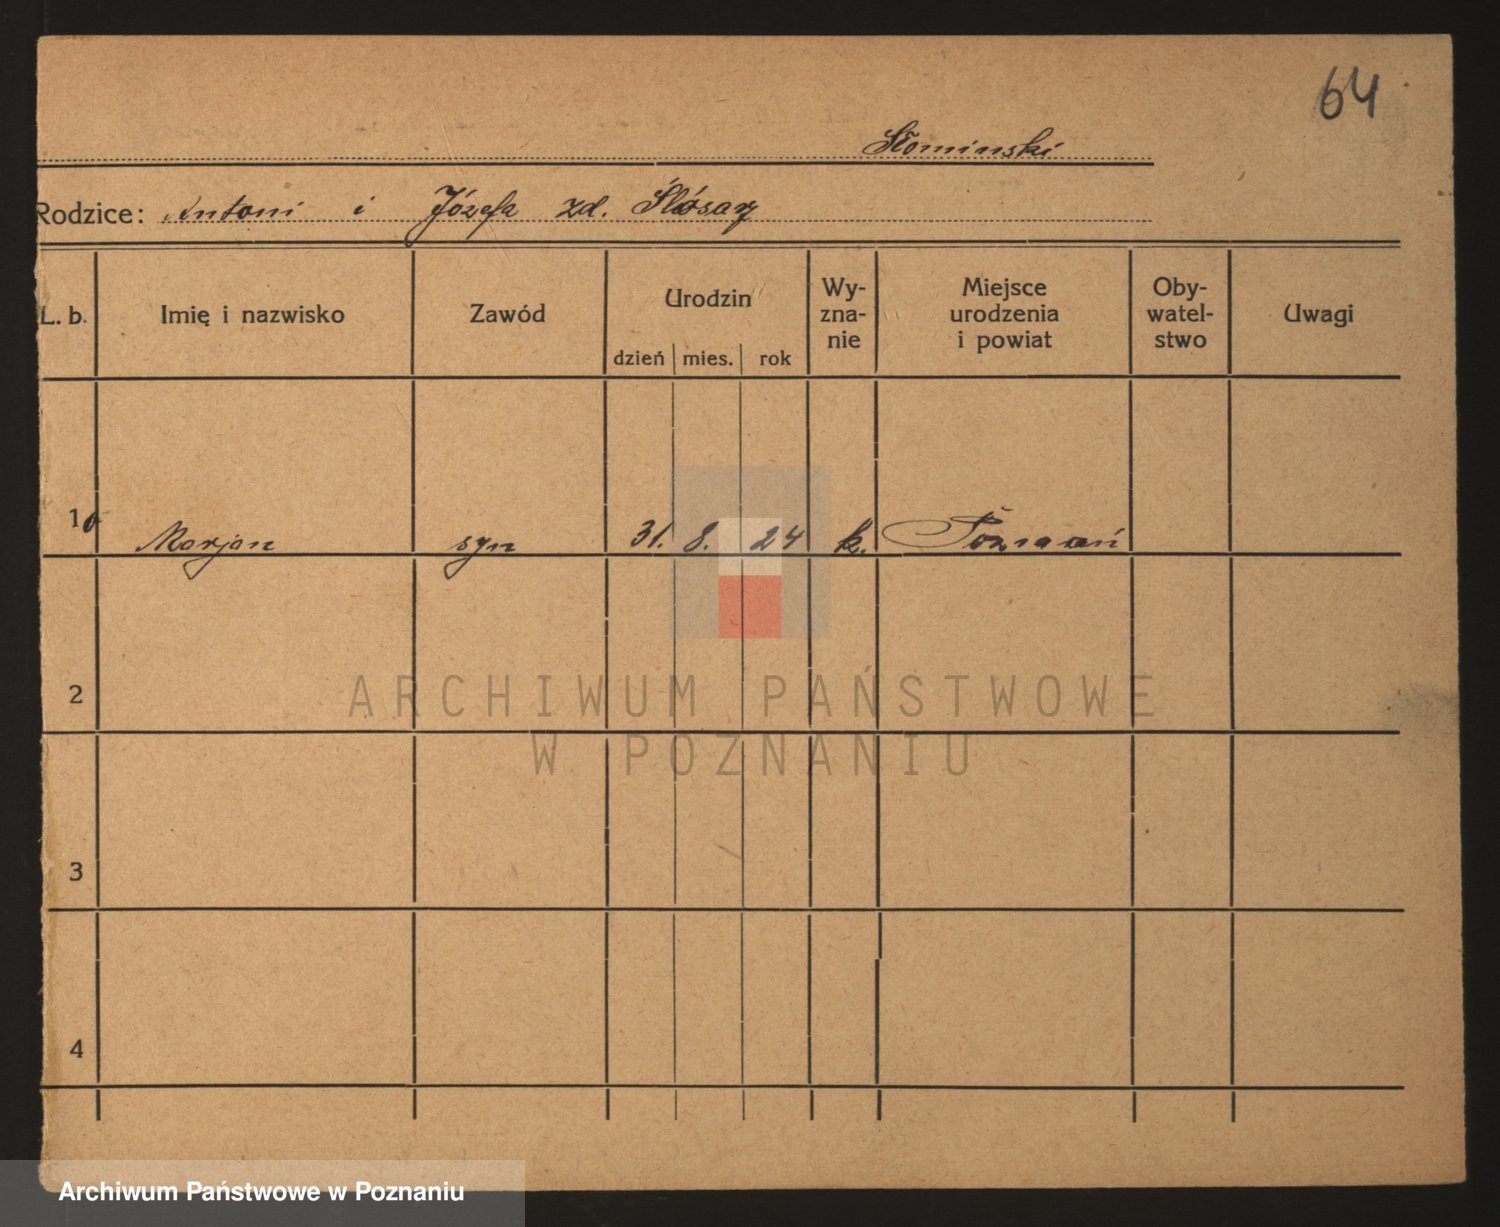 64
Słominski
Rodzice: Antoni i Józefa zd. Ślósarz
L. b. Imię i nazwisko Zawód Urodzin Wyznanie Miejsce urodzenia i powiat Obywatelstwo Uwagi
dzień mies. rok
1 Marjan syn 31. 8. 24 k. Poznań
2
ARCHIWUM PAŃSTWOWE
W POZNANIU
3
4
Archiwum Państwowe w Poznaniu